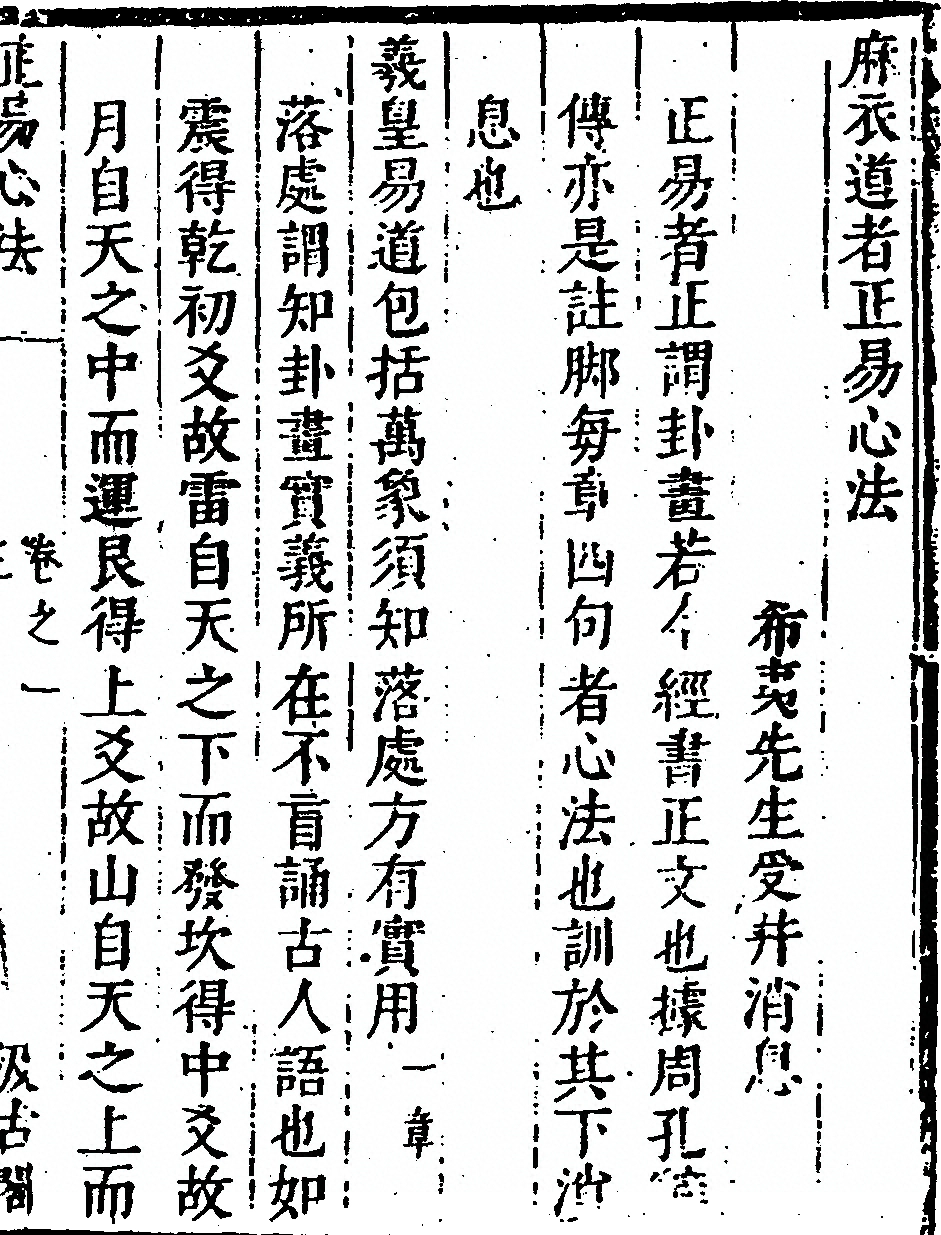 麻衣道者正易心法
希夷先生受并消息
正易者正謂卦畫若今經書正文也據周孔
傳亦是註脚每章四句者心法也訓於其下消
息也
羲皇易道包括萬象須知落處方有實用 一章
落處謂知卦畫實義所在不盲誦古人語也如
震得乾初爻故雷自天之下而發坎得中爻故
月自天之中而運艮得上爻故山自天之上而
正易心法 卷之一 汲古閣